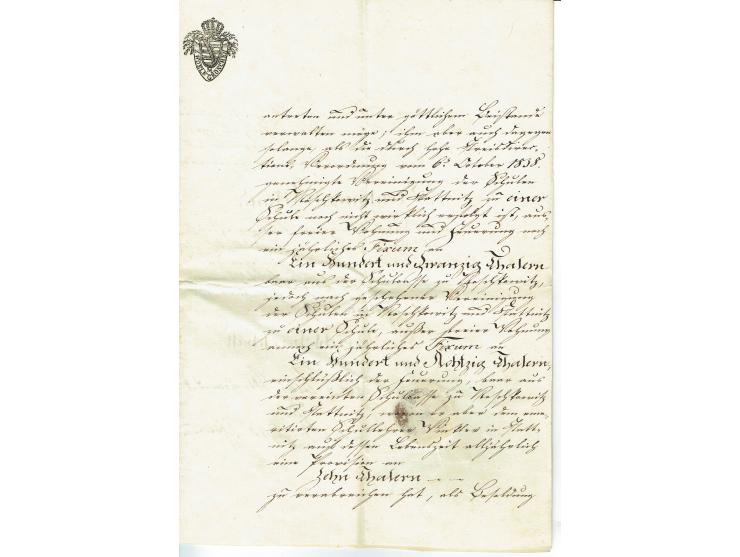 antreten und unter göttlichem Beistande
verwalten möge; ihm aber auch dagegen
solange als die durch hohe Kreisdirec-
tions-Verordnung vom 6. October 1838.
genehmigte Vereinigung der Schulen
in Noschkowitz und Kattnitz zu einer
Schule noch nicht wirklich erfolgt ist, aus-
ser freier Wohnung und Feuerung noch
ein jährliches Fixum an
Ein Hundert und Zwanzig Thalern
baar aus der Schulcasse zu Noschkowitz,
jedoch nach geschehener Vereinigung
der Schulen in Noschkowitz und Kattnitz
zu einer Schule, außer freier Wohnung
ein jährliches Fixum an
Ein Hundert und Achtzig Thalern,
einschlüßlich der Feuerung, baar aus
der vereinten Schulcasse zu Noschkowitz
und Kattnitz, wovon er aber dem eme-
ritirten Schullehrer Winkler in Katt-
nitz auf dessen Lebenszeit alljährlich
eine Provision an
Zehn Thalern
zu verabreichen hat, als Besoldung